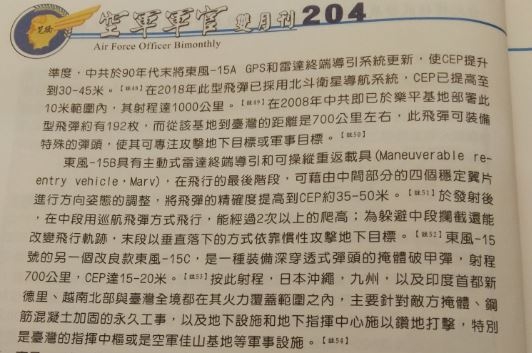 空軍軍官 雙月刊 204
Air Force Officer Bimonthly
準度，中共於90年代末將東風-15A GPS和雷達終端導引系統更新，使CEP提升
到30-45米。【註48】在2018年此型飛彈已採用北斗衛星導航系統，CEP已提高至
10米範圍內，其射程達1000公里。【註49】在2008年中共即已於樂平基地部署此
型飛彈約有192枚，而從該基地到臺灣的距離是700公里左右，此飛彈可裝備
特殊的彈頭，使其可專注攻擊地下目標或軍事目標。【註50】
東風-15B具有主動式雷達終端導引和可操縱重返載具(Maneuverable re-
entry vehicle，Marv)，在飛行的最後階段，可藉由中間部分的四個穩定翼片
進行方向姿態的調整，將飛彈的精確度提高到CEP約35-50米。【註51】於發射後
，在中段用巡航飛彈方式飛行，能經過2次以上的爬高；為躲避中段攔截還能
改變飛行軌跡，末段以垂直落下的方式依靠慣性攻擊地下目標。【註52】東風-15
號的另一個改良款東風-15C，是一種裝備深穿透式彈頭的掩體破甲彈，射程
700公里，CEP達15-20米。【註53】按此射程，日本沖繩，九州，以及印度首都新
德里、越南北部與臺灣全境都在其火力覆蓋範圍之內，主要針對敵方掩體、鋼
筋混凝土加固的永久工事，以及地下設施和地下指揮中心施以鑽地打擊，特別
是臺灣的指揮中樞或是空軍佳山基地等軍事設施。【註54】